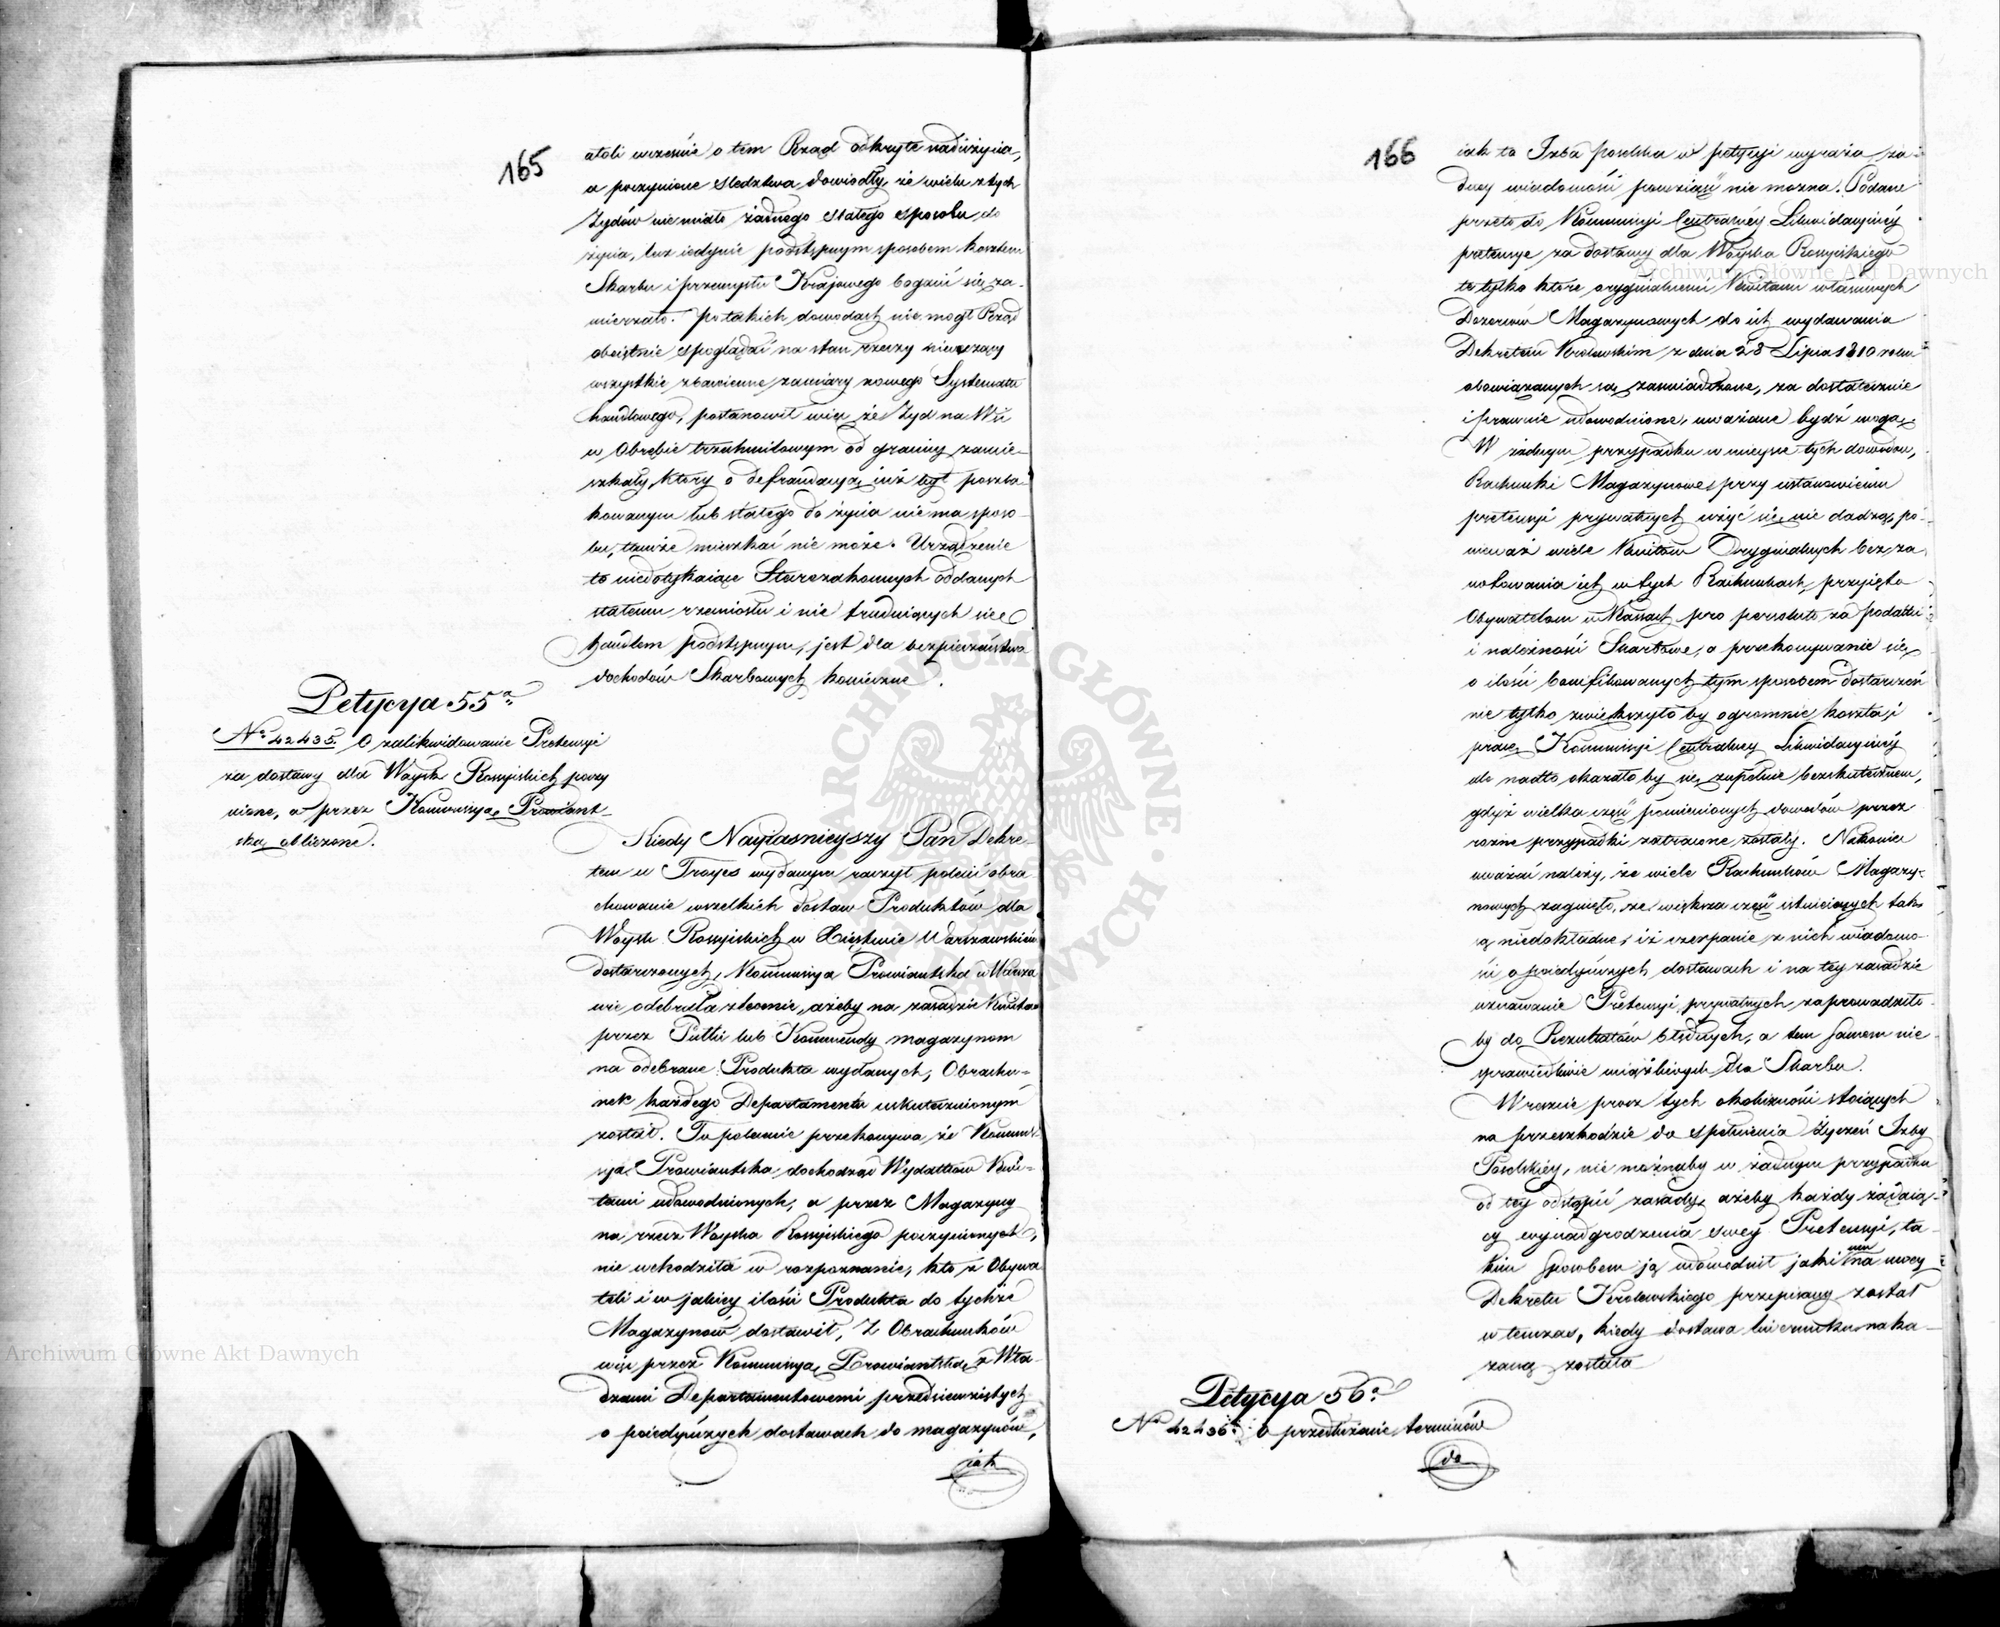 165
atoli wcześnie o tem Rząd odkrył te nadużycia,
a poczynione sledztwa dowiodły, że wielu z tych
Żydów nie miało żadnego stałego sposobu do
życia, lecz iedynie podstępnym sposobem kosztem
Skarbu i przemysłu Krajowego bogacić się za-
mierzało. Po takich dowodach nie mogł Rząd
oboiętnie spoglądać na stan rzeczy niweczący
wszystkie zbawienne zamiary nowego Systematu
handlowego, postanowił więc że Żyd na Wsi
w Obrębie trzechmilowym od granicy zamie-
szkały, który o defraudacyą iuż był poszla-
kowanym lub stałego do życia nie ma sposo-
bu, tamże mieszkać nie może. Urządzenie
to niedotykaiące Starozakonnych oddanych
stałemu rzemiosłu i nie trudniących się
handlem podstępnym, jest dla bezpieczeństwa
dochodów Skarbowych konieczne.
Petycya 55a
No 42435. O zalikwidowanie Pretensyi
za dostawy dla Woysk Rossyiskich poczy
nione, a przez Kommissyą Prowiant-
ską obliczone.
Kiedy Nayiasnieyszy Pan Dekre-
tem w Troyes wydanym raczył polecić obra
chowanie wszelkich dostaw Produktów dla
Woysk Rossyiskich w Xięstwie Warszawskim
dostarczonych, Kommissya Prowiantska w Warsza
wie odebrała zlecenie, ażeby na zasadzie Kwitów
przez Pułki lub Kommendy magazynom
na odebrane Produkta wydanych, Obrachu-
nek każdego Departamentu uskutecznionym
został. To polecenie przekonywa że Kommis-
sya Prowiantska dochodząc Wydatków Kwi-
tami udowodnionych, a przez Magazyny
na rzecz Woyska Rossyiskiego poczynionych,
nie wchodziła w rozpoznanie, kto z Obywa
teli i w jakiey ilości Produkta do tychże
Magazynów dostawił, Z Obrachunków
więc przez Kommissyą Prowiantską z Wła-
dzami Departamentowemi przedsiewziętych
o poiedyńczych dostawach do magazynów,
iak
166
iak to Izba poselska w petycyi wyraża, ża-
dney wiadomości powziąść nie można. Podane
przeto do Kommissyi Centralney Likwidacyiney
pretensye za dostawy dla Woyska Rossyiskiego
te tylko które oryginalnemi Kwitami właściwych
Dozorców Magazynowych do ich wydawania
Dekretem Krolewskim z dnia 28 Lipca 1810 roku
obowiązanych są zaswiadczone, za dostatecznie
i prawnie udowodnione, uważane bydź mogą,
W żadnym przypadku w mieysce tych dowodów,
Rachunki Magazynowe przy ustanowieniu
pretensyi prywatnych użyć się nie dadzą, po-
nieważ wiele Kwitów Oryginalnych bez za
notowania ich w tych Rachunkach, przyięto
Obywatelom w Kassach pro persoluto za podatki
i należności Skarbowe, a przekonywanie się
o ilości bonifikowanych tym sposobem dostarczeń
nie tylko zwiększyło by ogromnie koszta i
pracę Kommissyi Centralney Likwidacyiney
ale nadto okazało by się zupełnie bezskutecznem,
gdyż wielka część pomienionych dowodów przez
rozne przypadki zatracone zostały. Nakoniec
uważać należy, że wiele Rachunków Magazy-
nowych zaginęło, że większa część istnieiących tak
są niedokładne, iż czerpanie z nich wiadomo-
ści o poiedyńczych dostawach i na tey zasadzie
uznawanie Pretensyi prywatnych zaprowadziło-
by do Rezultatów błędnych, a tem samem nie-
sprawiedliwie uciążliwych dla Skarbu.
W razie procz tych okoliczności stoiących
na przeszkodzie do spełnienia życzeń Izby
Poselskiey, nie możnaby w żadnym przypadku
od tey odstąpić zasady, ażeby każdy żądaią-
cy wynadgrodzenia swey Pretensyi, ta-
kim sposobem ją udowodnił jaki mu na mocy
Dekretu Krolewskiego przepisany został
w tenczas, kiedy dostawa kierunku naka-
zaną została
Petycya 56a
No 42436. O przedłużanie terminów
do
Archiwum Główne Akt Dawnych
Archiwum Główne Akt Dawnych
ARCHIWUM GŁÓWNE AKT DAWNYCH